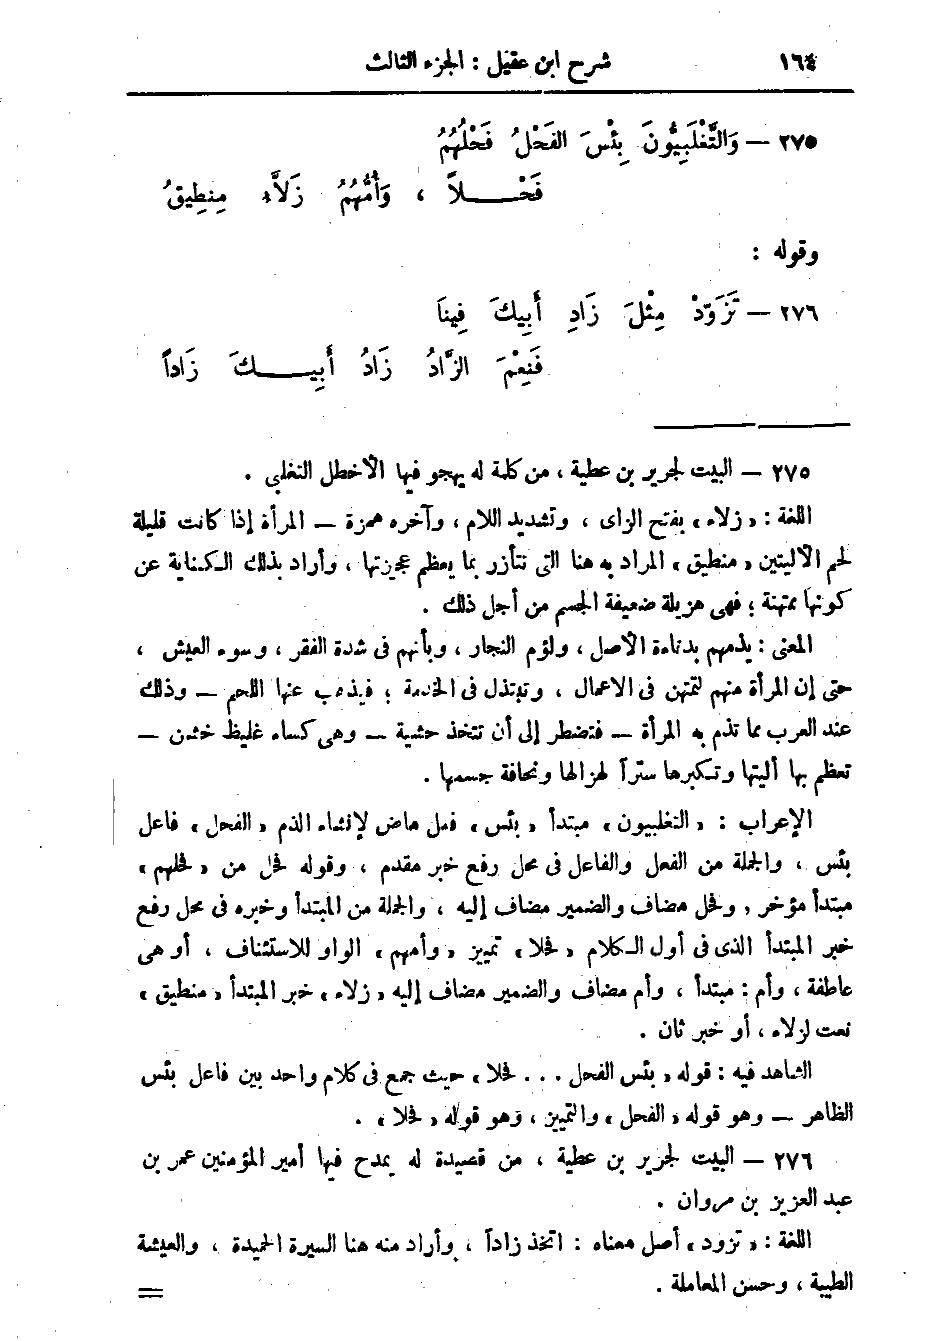 ١٦٤ شرح ابن عقيل : الجزء الثالث
٢٧٥ — وَالتَّغْلَبِيُّونَ بِئْسَ الفَحْلُ فَحْلُهُمُ
فَحْـــلاً ، وَأُمُّهُمُ زَلاَّءِ مِنطِيقُ
وقوله :
٢٧٦ — تَزَوَّدْ مِثْلَ زَادِ أَبِيكَ فِينَا
فَنِعْمَ الزَّادُ زَادُ أَبِيـــكَ زَاداً
٢٧٥ — البيت لجرير بن عطية ، من كلمة له يهجو فيها الأخطل التغلبي .
اللغة : « زلاء » بفتح الزاى ، وتشديد اللام ، وآخره همزة — المرأة إذا كانت قليلة
لحم الأليتين « منطيق » المراد به هنا التى تتأزر بما يعظم عجيزتها ، وأراد بذلك الكناية عن
كونها ممتهنة ؛ فهى هزيلة ضعيفة الجسم من أجل ذلك .
المعنى : يذمهم بدناءة الأصل ، ولؤم النجار ، وبأنهم فى شدة الفقر ، وسوء العيش ،
حتى إن المرأة منهم لتمتهن فى الأعمال ، وتبتذل فى الخدمة ؛ فيذهب عنها اللحم — وذلك
عند العرب مما تذم به المرأة — فتضطر إلى أن تتخذ حشية — وهى كساء غليظ خشن —
تعظم بها أليتها وتكبرها ستراً لهزالها ونحافة جسمها .
الإعراب : « التغلبيون » مبتدأ « بئس » فعل ماض لإنشاء الذم « الفحل » فاعل
بئس ، والجملة من الفعل والفاعل فى محل رفع خبر مقدم ، وقوله فحل من « فحلهم »
مبتدأ مؤخر ، وفحل مضاف والضمير مضاف إليه ، والجملة من المبتدأ وخبره فى محل رفع
خبر المبتدأ الذى فى أول الكلام « فحلا » تمييز « وأمهم » الواو للاستئناف ، أو هى
عاطفة ، وأم : مبتدأ ، وأم مضاف والضمير مضاف إليه « زلاء » خبر المبتدأ « منطيق »
نعت لزلاء ، أو خبر ثان .
الشاهد فيه : قوله « بئس الفحل . . . فحلا » حيث جمع فى كلام واحد بين فاعل بئس
الظاهر — وهو قوله « الفحل » والتمييز ، وهو قوله « فحلا » .
٢٧٦ — البيت لجرير بن عطية ، من قصيدة له يمدح فيها أمير المؤمنين عمر بن
عبد العزيز بن مروان .
اللغة : « تزود » أصل معناه : اتخذ زاداً ، وأراد منه هنا السيرة الحميدة ، والعيشة
الطيبة ، وحسن المعاملة . =